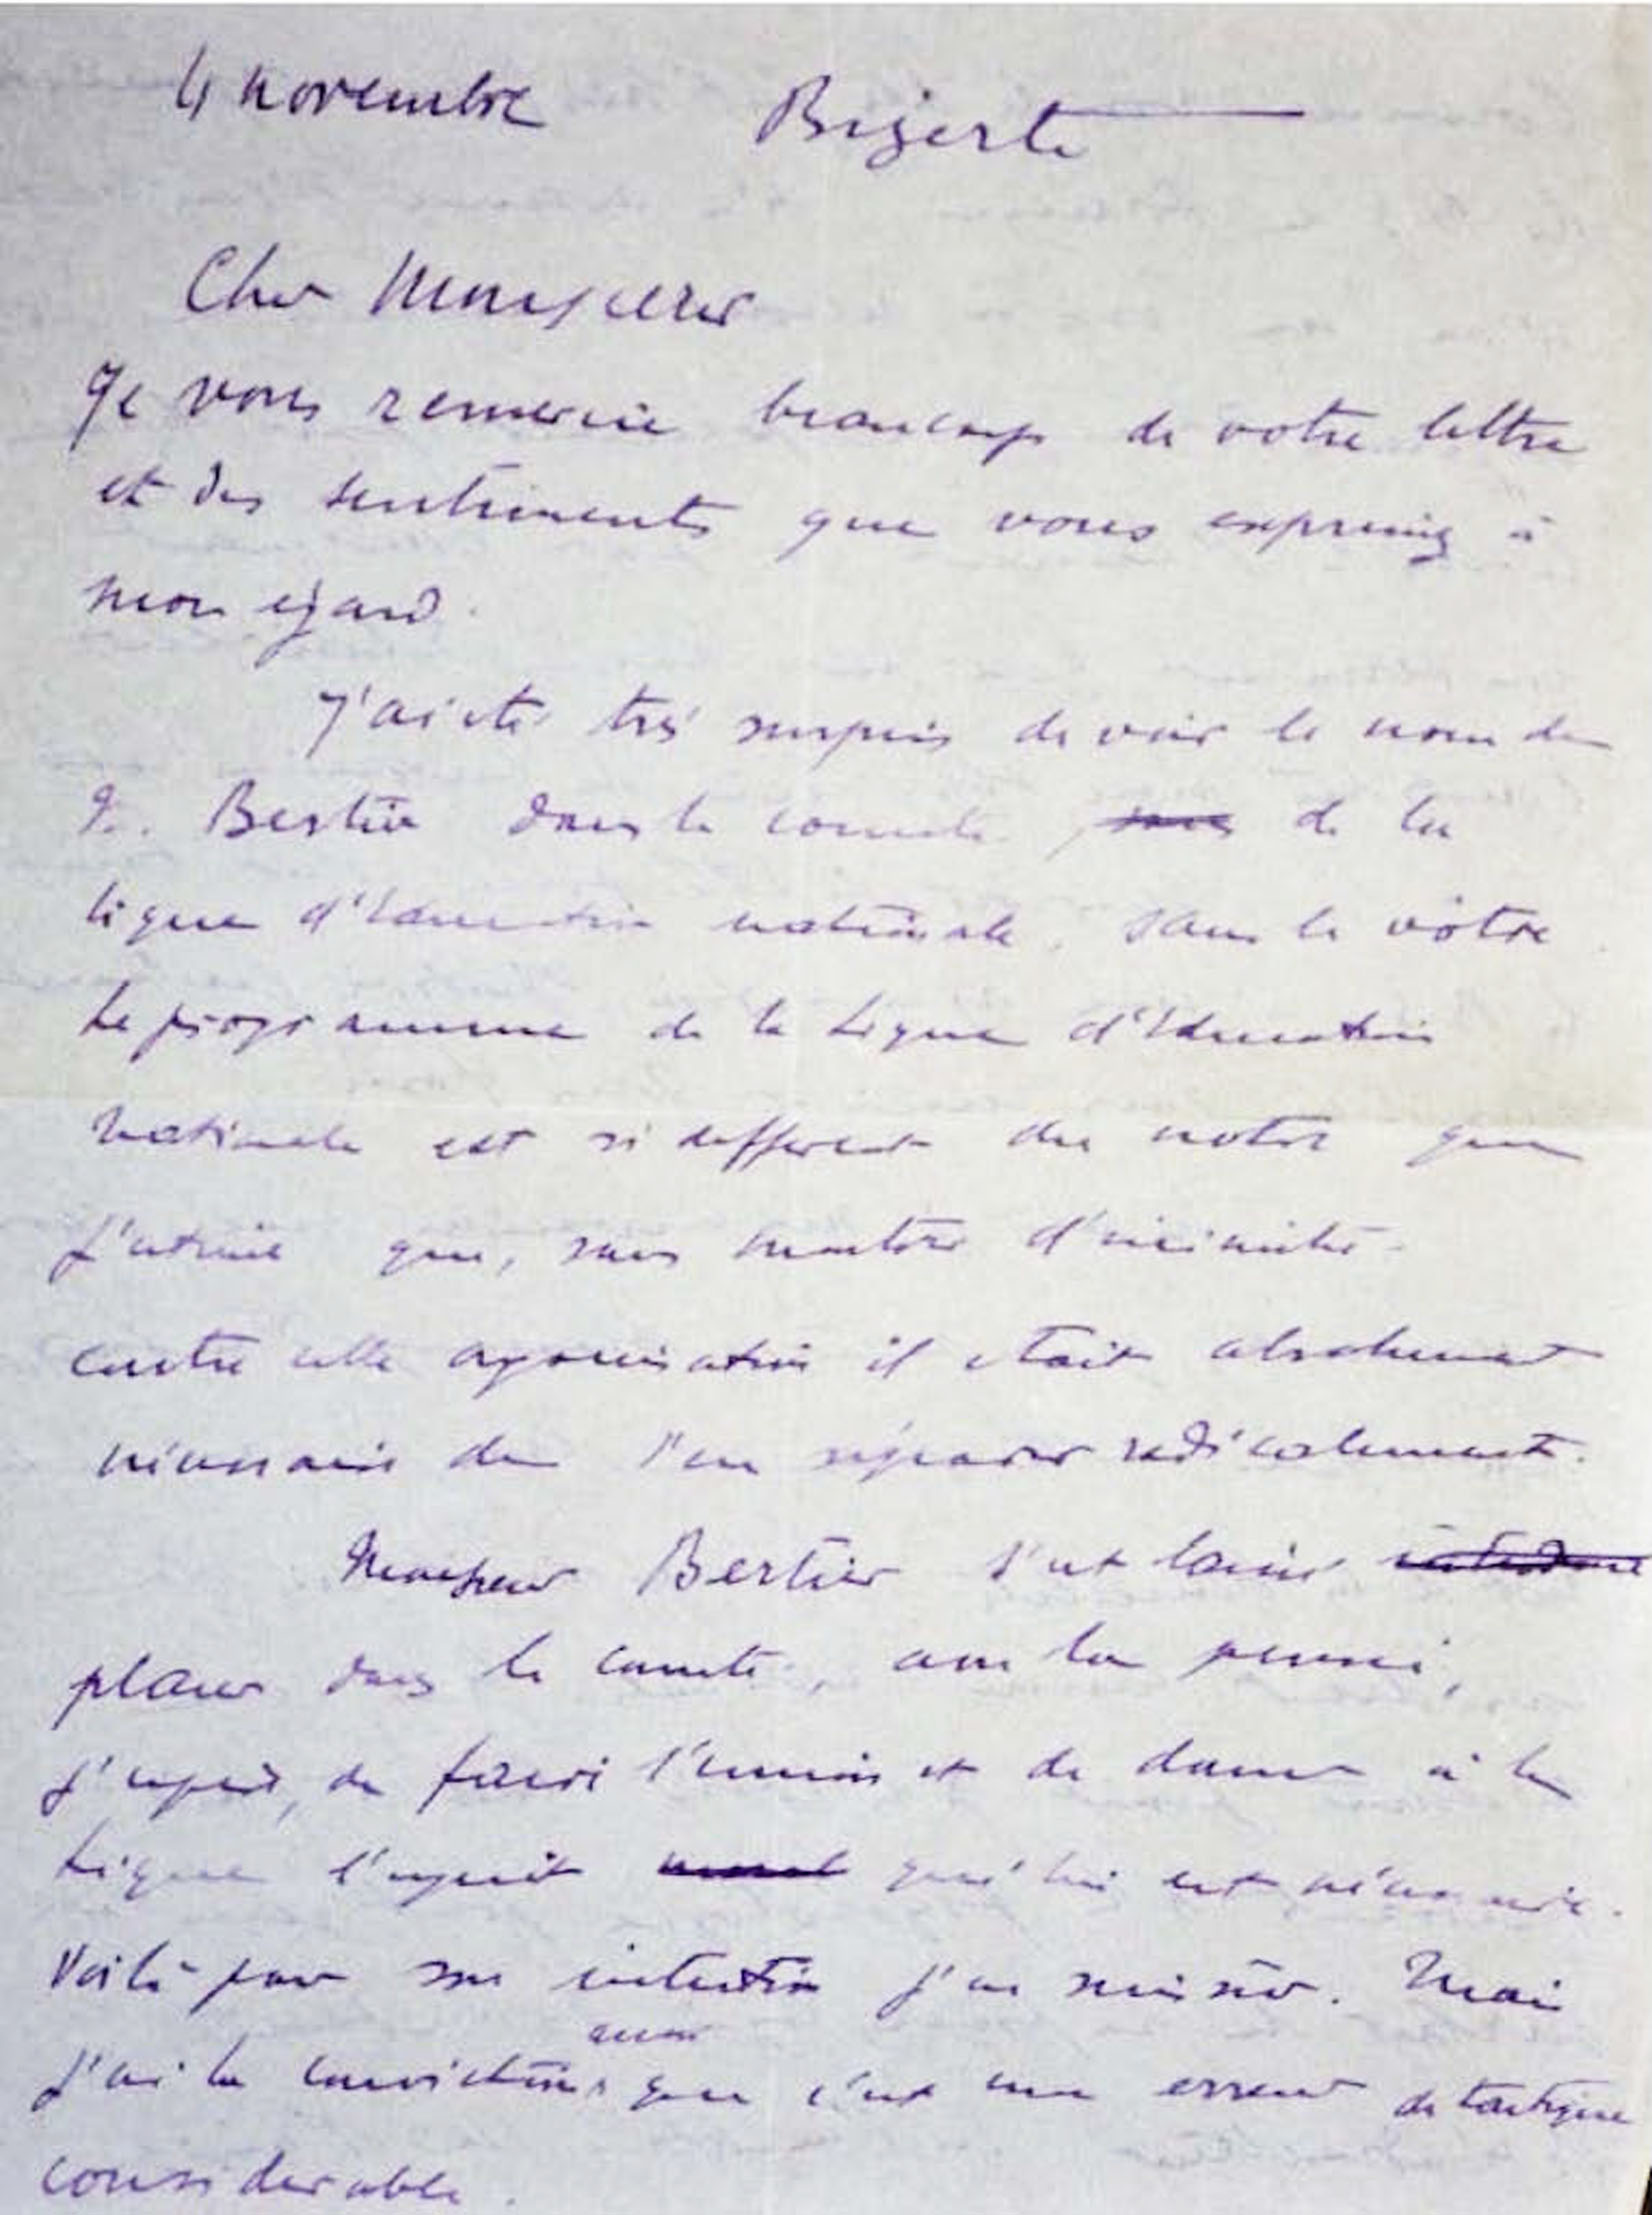 4 novembre Bizerte
Cher Monsieur
Je vous remercie beaucoup de votre lettre
et des sentiments que vous exprimez à
mon egard.
J'ai eté trés surpris de voir le nom de
Bertier dans le comité de la
ligue d'Education nationale, dans le vôtre
Le programme de la Ligue d'Education
Nationale est si different du notre que
J'estime que, sans montrer d'inimitié
contre cette organisation il etait absolument
nécessaire de s'en séparer radicalement.
Monsieur Bertier s'est laissé introduire
placer dans le comité, avec la pensée,
j'espère, de faire l'union et de donner à la
Ligue l'esprit moral qui lui est nécessaire.
Voilà pour son intention j'en suis sûr. Mais
aussi
j'ai la conviction que c'est une erreur de tactique
considerable.